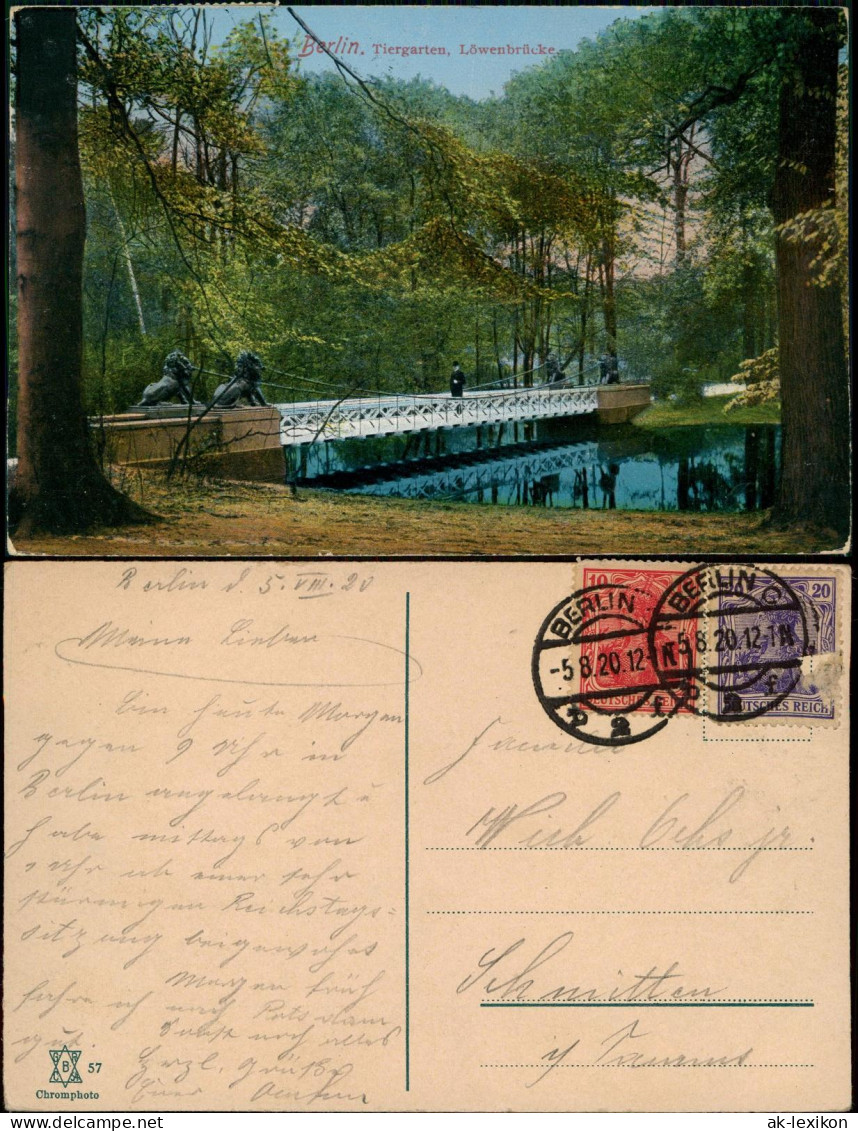 Berlin. Tiergarten, Löwenbrücke.
Berlin d. 5. VIII. 20
Meine Lieben
Bin heute Morgen
gegen 9 Uhr in
Berlin angelangt u
habe mittags von
1 Uhr ab einer sehr
stürmigen Reichstags=
sitzung beigewohnt
Morgen früh
fahre ich nach Potsdam
Sonst noch alles
gut.
Herzl. Grüße
Euer
57
Chromphoto
10
DEUTSCHES REICH
20
DEUTSCHES REICH
BERLIN
-5.8.20.12-1N
BERLIN C
-5.8.20.12-1N
Familie
Wilh. Ochs jr.
Schmitten
i/ Taunus
ak-lexikon